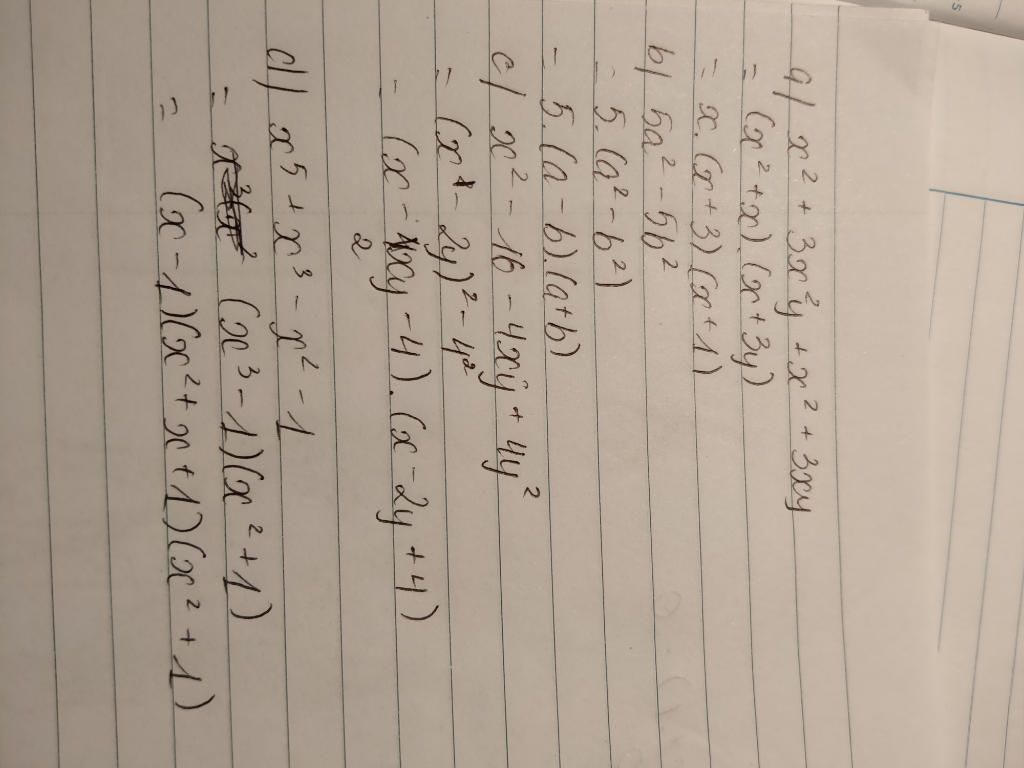 a) x² + 3x²y + x² + 3xy
= (x² + x).(x + 3y)
= x.(x + 3).(x + 1)
b) 5a² - 5b²
= 5.(a² - b²)
= 5.(a - b).(a + b)
c) x² - 16 - 4xy + 4y²
= (x - 2y)² - 4²
= (x - 2y - 4).(x - 2y + 4)
d) x⁵ + x³ - x² - 1
= (x³ - 1)(x² + 1)
= (x - 1)(x² + x + 1)(x² + 1)